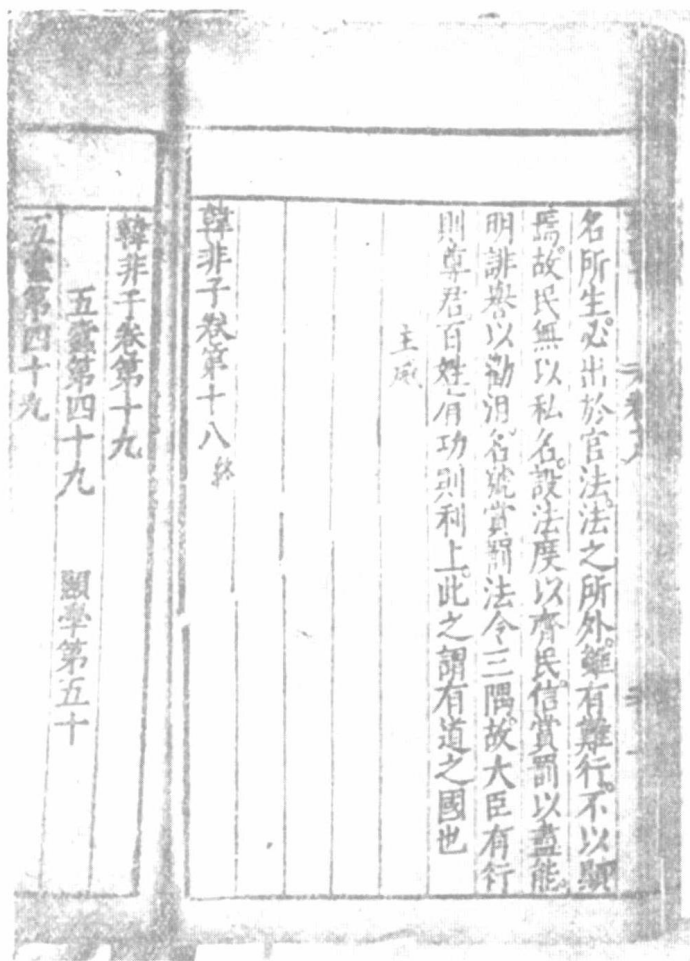 名所生。必出於官法。法之所外。雖有難行。不以顯
焉。故民無以私名。設法度以齊民。信賞罰以盡能。
明誹譽以勸沮。名號賞罰法令三隅。故大臣有行
則尊君。百姓有功則利上。此之謂有道之國也
主威
韓非子卷第十八 終
韓非子卷第十九
五蠹第四十九 顯學第五十
五蠹第四十九